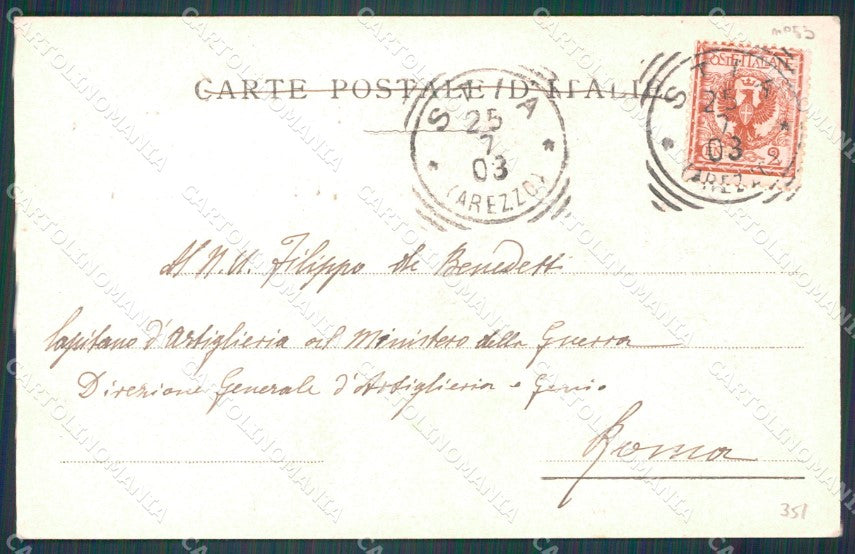 mor5
CARTE POSTALE D'ITALIE
POSTE ITALIANE
CENT. 2
STIA
25
7
03
(AREZZO)
STIA
25
7
03
(AREZZO)
Al N. U. Filippo de Benedetti
Capitano d'Artiglieria al Ministero della Guerra
Direzione Generale d'Artiglieria e Genio
Roma
351
CARTOLINOMANIA